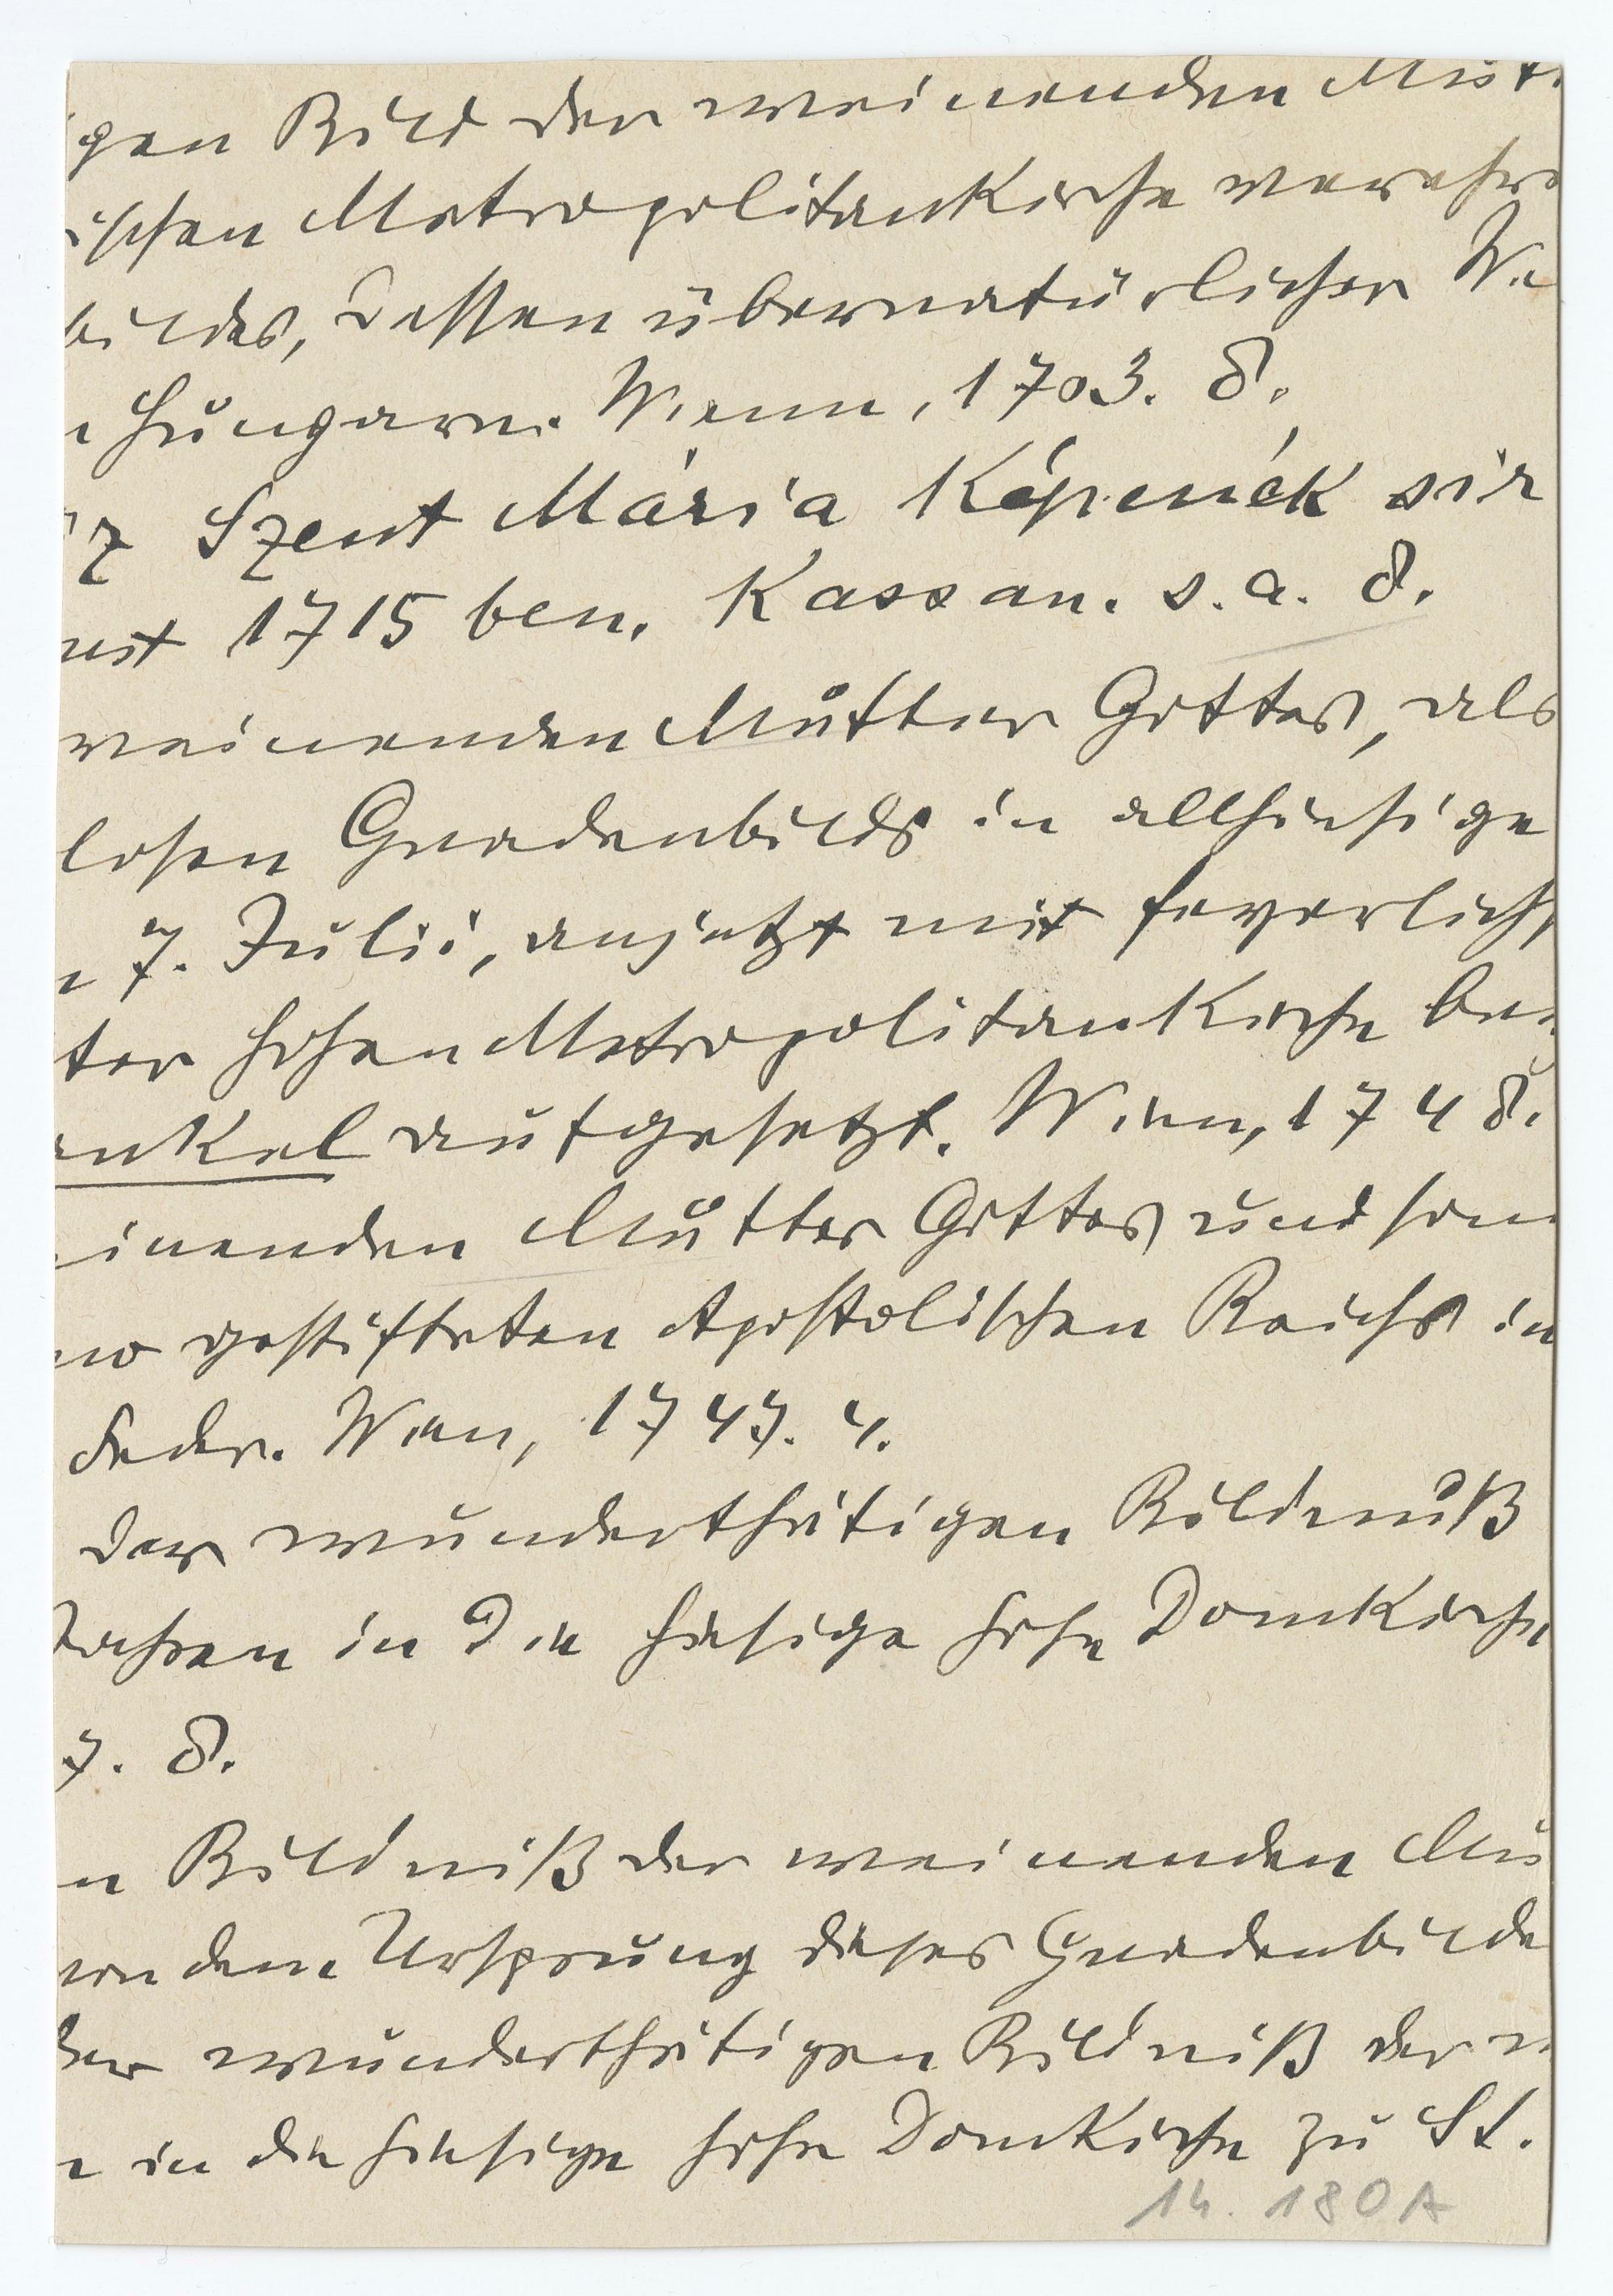 gen Bild der weinenden Mut
ischen Metropolitankirche verehr
bildes, dessen übernatürlicher We
n Hungarn. Wienn, 1703. 8.
z Szent Mária Képenék sir
ust 1715 ben. Kassan. s. a. 8.
weinenden Mutter Gottes, als
losen Gnadenbilds in allhiesige
n 7. Julii, anjetzt mit feyerlich
ter hohen Metropolitankirche be
nkel aufgesetzt. Wien, 1748.
inenden Mutter Gottes und
no gestifteten Apostolischen Reichs in
Feder. Wien, 1747. 4.
der wunderthätigen Bildnuß
Jahren in die hiesige hohe Domkirche
7. 8.
n Bildniß der weinenden Mu
von dem Ursprung dieses Gnadenbilde
der wunderthätigen Bildniß der w
n in die hiesige hohe Domkirche zu St.
14. 180A